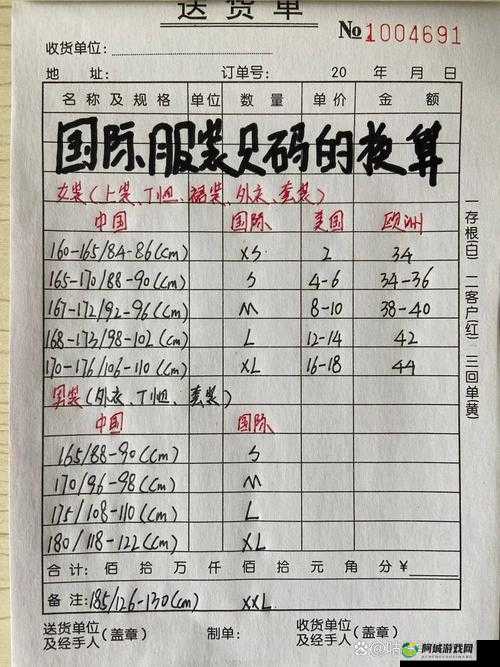 送货单
№1004691
收货单位:
地 址: 订单号: 20 年 月 日
名称及规格 单位 数量 单价 金额
国际服装尺码的换算
女装(上装、T恤、裙装、外衣、套装)
中国 国际 美国 欧洲
160-165/84-86(cm) XS 2 34
165-170/88-90(cm) S 4-6 34-36
167-172/92-96(cm) M 8-10 38-40
168-173/98-102(cm) L 12-14 42
170-176/106-110(cm) XL 16-18 44
男装(外衣、T恤、套装)
中国 国际
165/88-90(cm) S
170/96-98(cm) M
175/108-110(cm) L
180/118-122(cm) XL
合计: 佰 拾 万 仟 佰 拾 元 角 分 ¥
备注: 185/126-130(cm) XXL
送货单位及经手人(盖章) 制单:
一存根(白) 二客户(红) 三回单(黄)
阿城游戏网